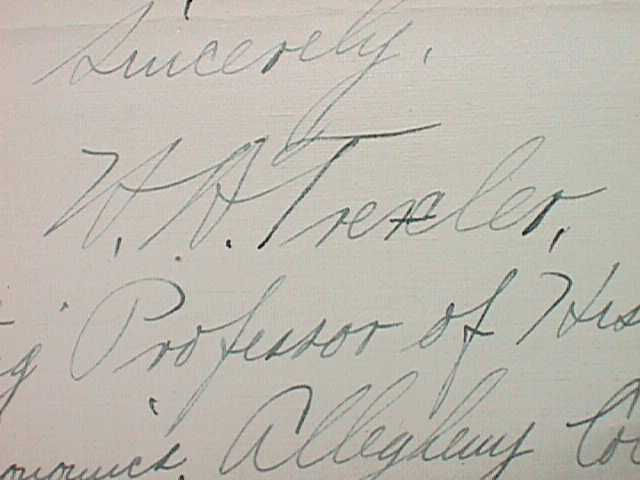 Sincerely,
H. A. Trexler,
g Professor of His
onomics, Allegheny Col